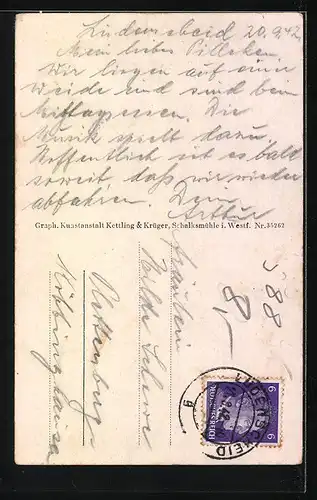 Lüdenscheid 20.9.42
Mein liebes
Wir liegen auf einer
Weide und sind beim
Mittagessen. Die
Musik spielt dazu
Hoffentlich ist es bald
soweit daß wir wieder
abfahren. Dein
Arthur
Graph. Kunstanstalt Kettling & Krüger, Schalksmühle i. Westf. Nr.35262
Fräulein
Hilde
88
LÜDENSCHEID
g
6 6